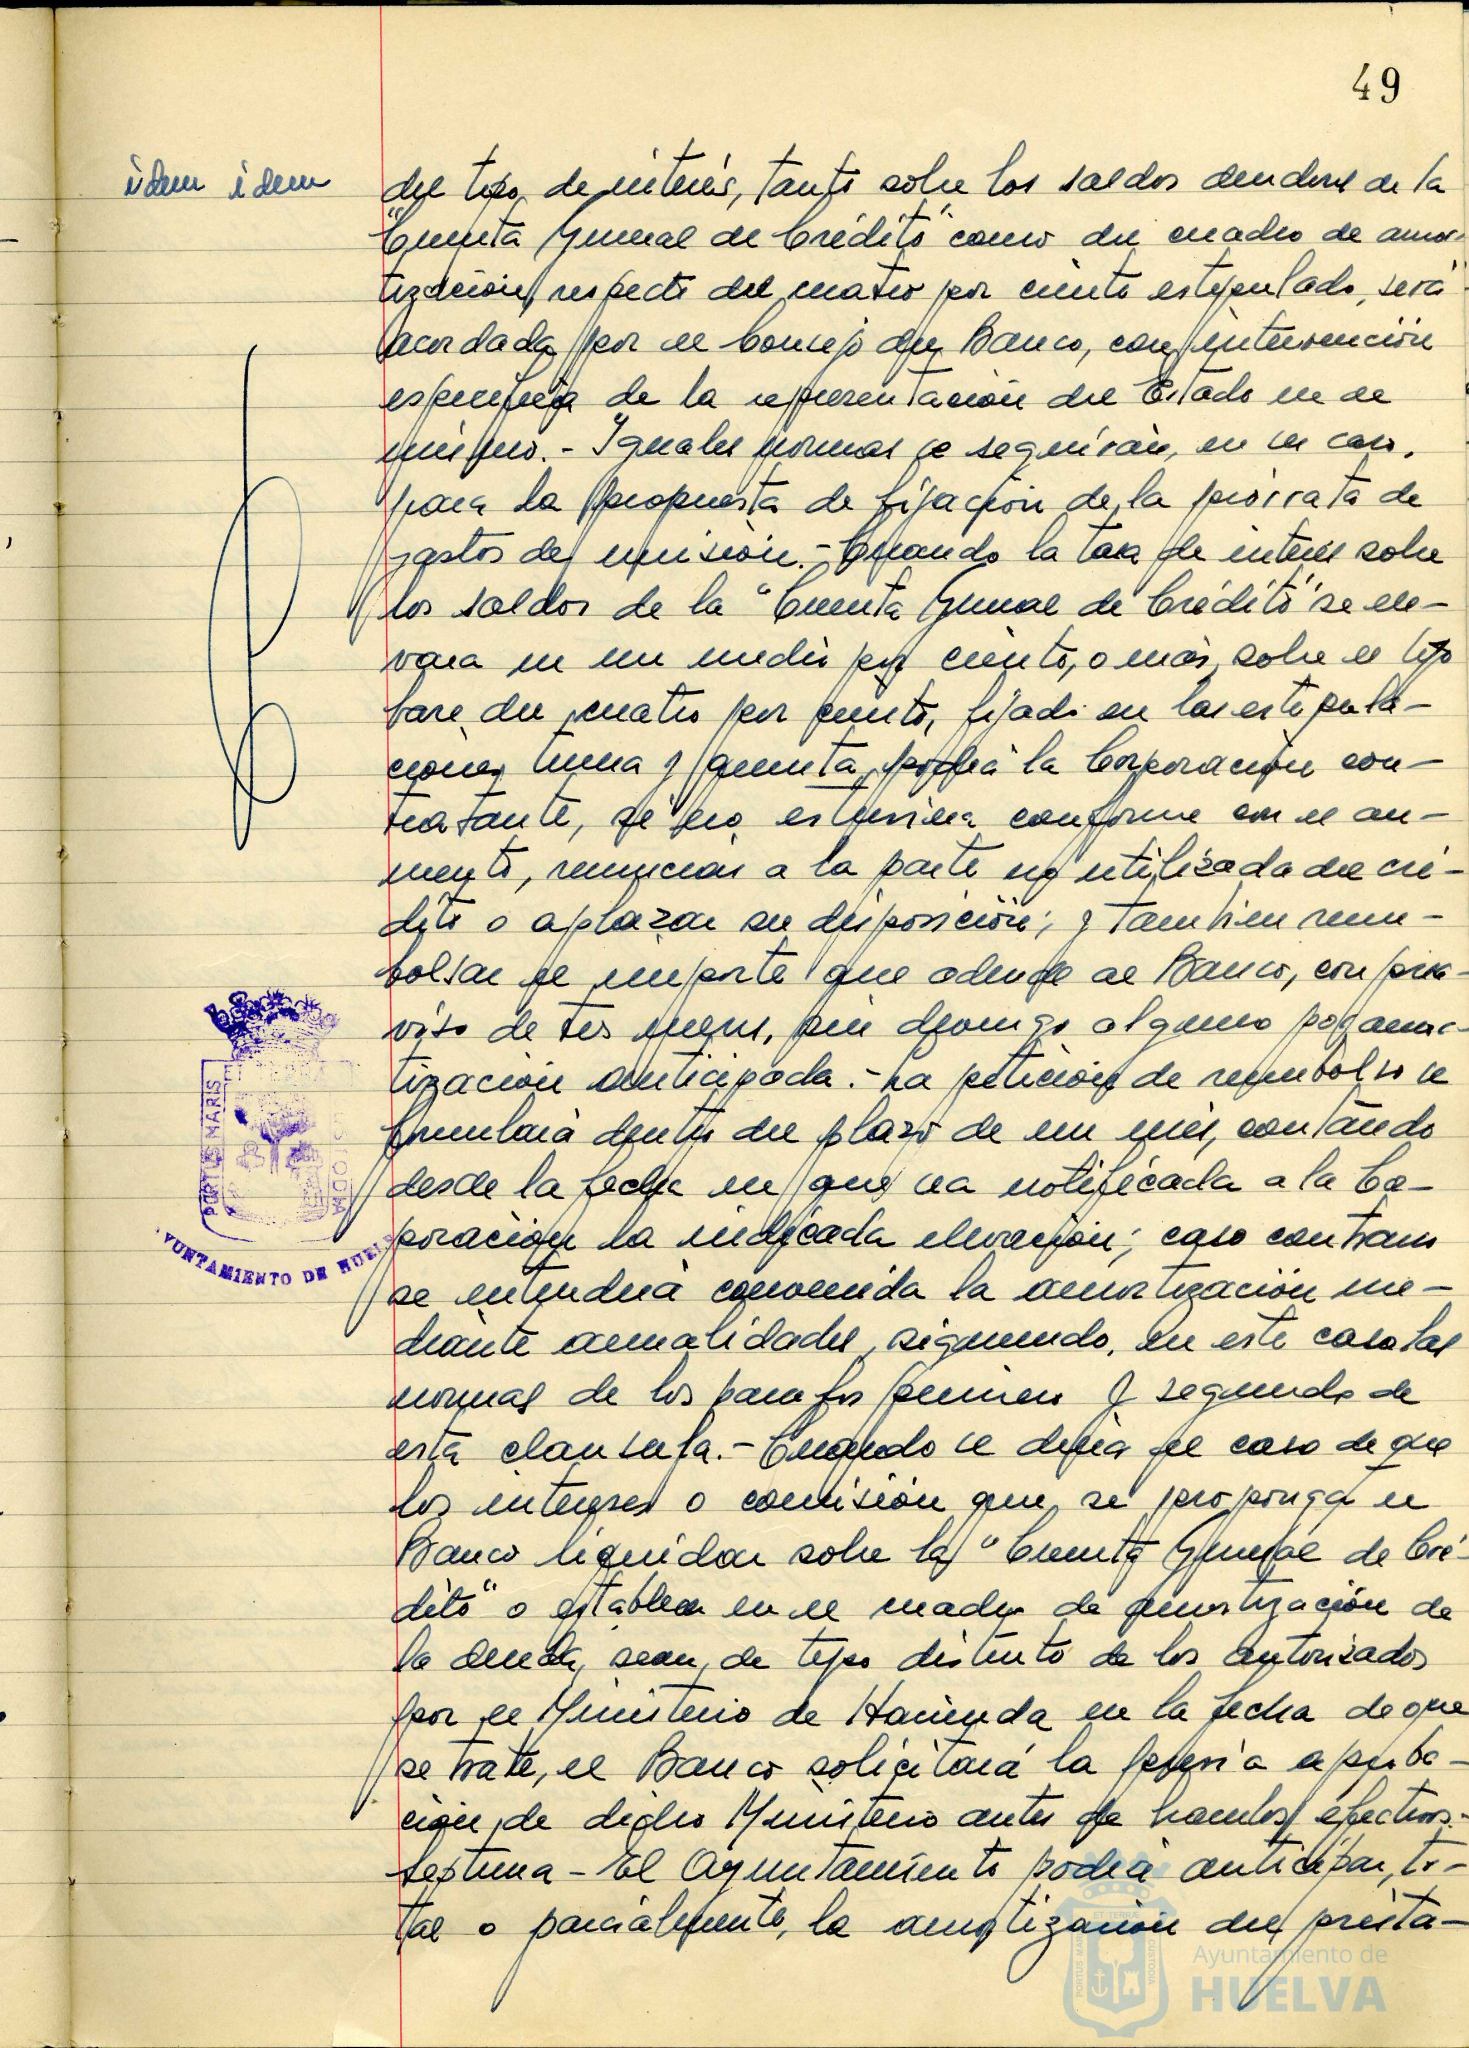 49
idem idem
del tipo de interés, tanto sobre los saldos deudores de la
"Cuenta General de Crédito" como del cuadro de amor-
tización, respecto del cuatro por ciento estipulado, será
acordada por el Consejo del Banco, con intervención
específica de la representación del Estado en el
mismo.- Iguales normas se seguirán, en su caso,
para la propuesta de fijación de la prórrata de
gastos de emisión.- Cuando la tasa de interés sobre
los saldos de la "Cuenta General de Crédito" se ele-
vara en un medio por ciento, o más, sobre el tipo
base del cuatro por ciento, fijado en las estipula-
ciones tercera y quinta, podrá la Corporación con-
tratante, si no estuviera conforme con el au-
mento, renunciar a la parte no utilizada del cré-
dito o aplazar su disposición; y también reem-
bolsar el importe que adeude al Banco, con prea-
viso de tres meses, sin devengo alguno por amor-
tización anticipada.- La petición de reembolso se
formulará dentro del plazo de un mes, contando
desde la fecha en que sea notificada a la Co-
poración la indicada elevación; caso contrario
se entenderá convenida la amortización me-
diante anualidades, siguiendo, en este caso las
normas de los parrafos primero y segundo de
esta clausula.- Cuando se diera el caso de que
los intereses o comisión que se proponga el
Banco liquidar sobre la "Cuenta General de Cré-
dito" o establecer en el cuadro de amortización de
la deuda, sean, de tipo distinto de los autorizados
por el Ministerio de Hacienda en la fecha de que
se trate, el Banco solicitará la previa aproba-
ción, de dicho Ministerio antes de hacerlos efectivos.-
Septima - El Ayuntamiento podrá anticipar, to-
tal o parcialmente, la amortización del présta-
PORTUS MARIS
ET TERRA
CUSTODIA
AYUNTAMIENTO DE HUELVA
Ayuntamiento de
HUELVA